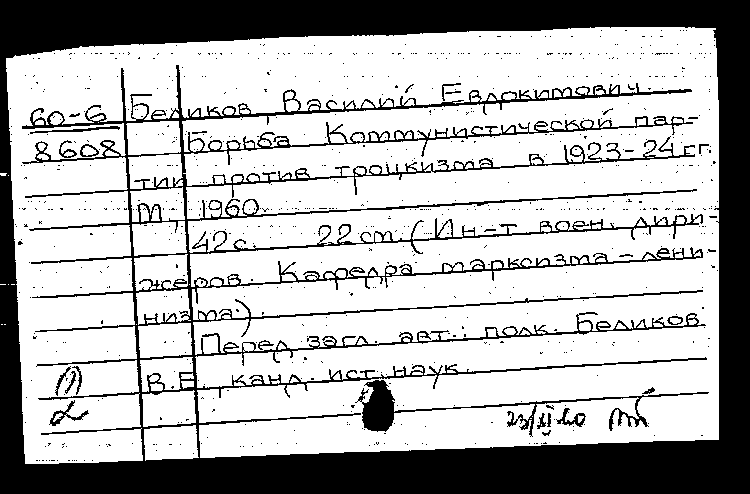 60-6 Беликов, Василий Евдокимович.
8608 Борьба Коммунистической пар-
тии против троцкизма в 1923-24 гг.
М., 1960.
42 с. 22 см. (Ин-т воен. дири-
жеров. Кафедра марксизма-лени-
низма).
Перед загл. авт.: полк. Беликов
В.Е., канд. ист. наук.
23/XI 60